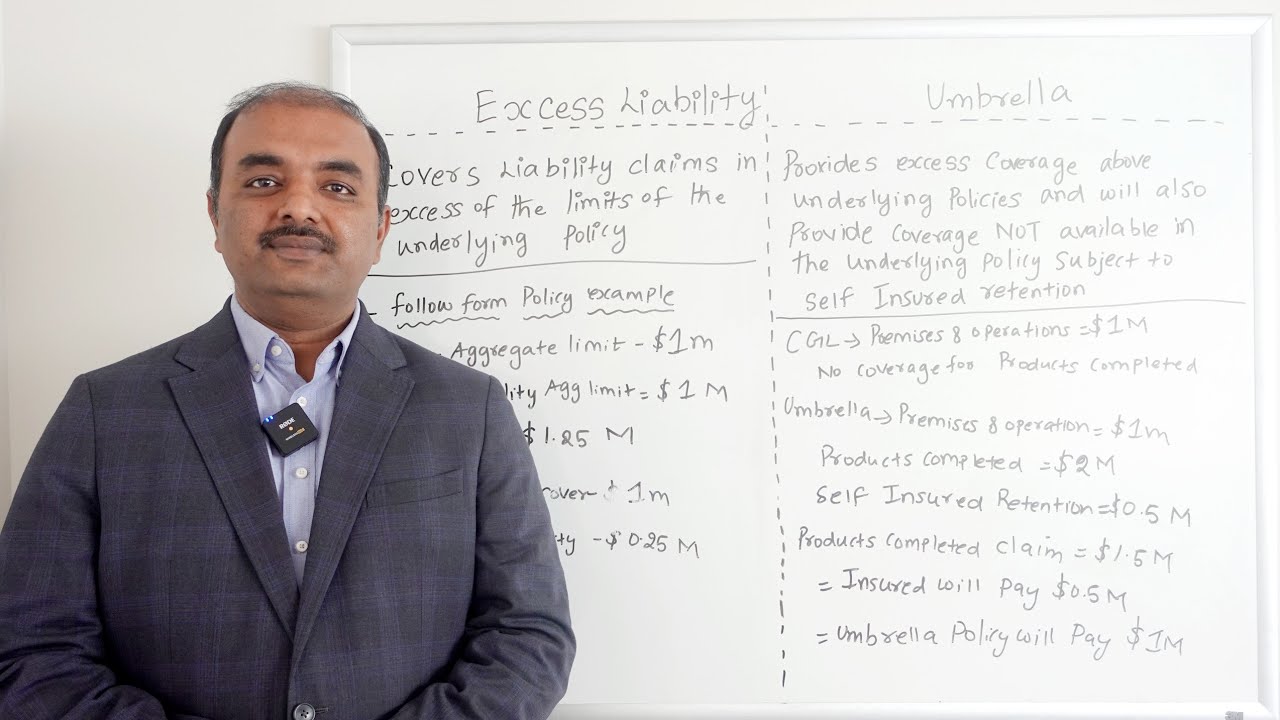 Excess Liability
Covers Liability claims in
excess of the limits of the
underlying policy
- follow form Policy example
Aggregate limit - $1m
Agg limit = $1 M
$1.25 M
cover - $1m
- $0.25 M
Umbrella
Provides excess Coverage above
underlying Policies and will also
Provide Coverage NOT available in
the underlying policy Subject to
Self Insured retention
CGL → Premises & operations = $1M
No coverage for Products Completed
Umbrella → Premises & operation = $1m
Products Completed = $2M
Self Insured Retention = $0.5 M
Products Completed claim = $1.5 M
= Insured will Pay $0.5 M
= Umbrella Policy will Pay $1M
RØDE